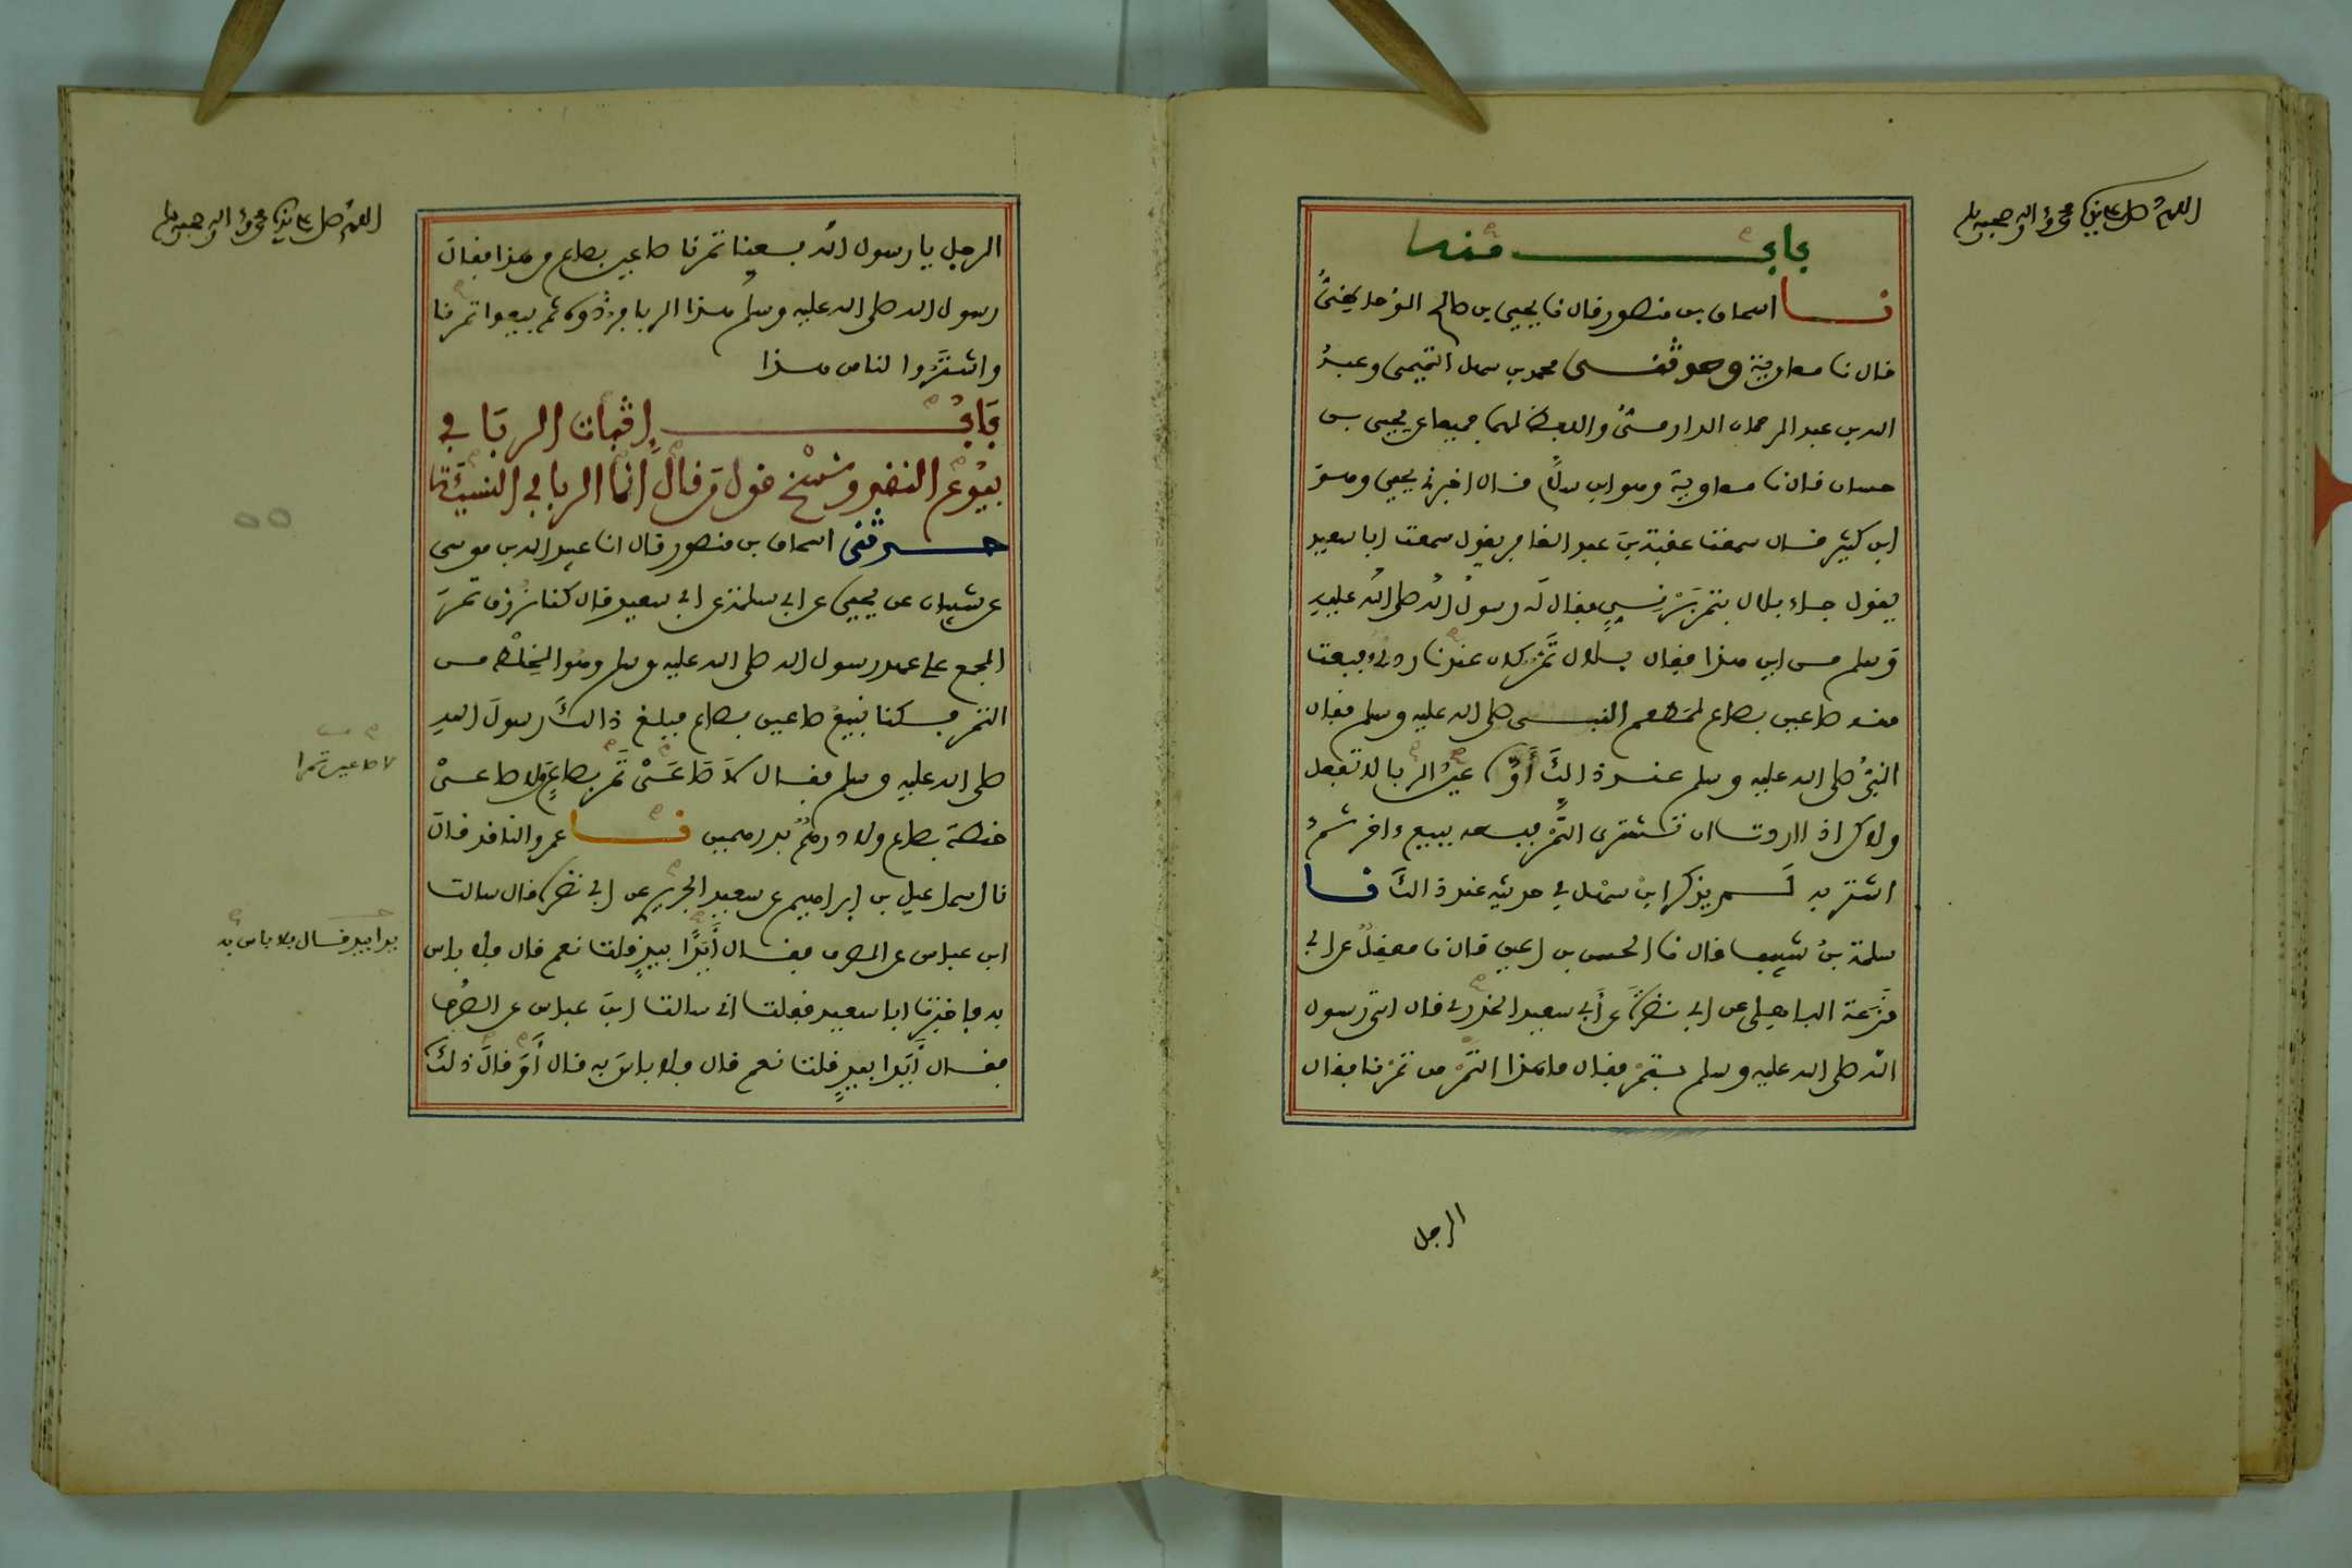 اللهم صل على سيدنا محمد وآله وصحبه وسلم
باب منه
نا اسحاق بن منصور قال نا يحيى بن صالح الوحاظي
قال نا معاوية وحدثني محمد بن سهل التميمي وعبد
الله بن عبد الرحمان الدارمي واللفظ لهما جميعا عن يحيى بن
حسان قال نا معاوية وهو ابن سلام قال اخبرني يحيى وهو
ابن كثير قال سمعت عقبة بن عبد الغافر يقول سمعت ابا سعيد
يقول جاء بلال بتمر برني فقال له رسول الله صلى الله عليه
وسلم من اين هذا فقال بلال تمر كان عندنا ردي فبعت
منه صاعين بصاع لمطعم النبي صلى الله عليه وسلم فقال
النبي صلى الله عليه وسلم عند ذالك أوه عين الربا لا تفعل
ولاكن اذا اردت ان تشتري التمر فبعه ببيع ءاخر ثم
اشتر به لم يذكر ابن سهل في حديثه عند ذالك نا
سلمة بن شبيب قال نا الحسن بن اعين قال نا معقل عن ابي
قزعة الباهلي عن ابي نضرة عن أبي سعيد الخدري قال اتي رسول
الله صلى الله عليه وسلم بتمر فقال ما هذا التمر من تمرنا فقال
الرجل
اللهم صل على سيدنا محمد وآله وصحبه وسلم
الرجل يا رسول الله بعنا تمرنا صاعين بصاع من هذا فقال
رسول الله صلى الله عليه وسلم هذا الربا فردوه ثم بيعوا تمرنا
واشتروا لنا من هذا
باب إثبات الربا في
بيوع النقد ونسخ قول من قال انما الربا في النسيئة
حدثني اسحاق بن منصور قال انا عبيد الله بن موسى
عن شيبان عن يحيى عن ابي سلمة عن ابي سعيد قال كنا نرزق تمر
الجمع على عهد رسول الله صلى الله عليه وسلم وهو الخلط من
التمر فكنا نبيع صاعين بصاع فبلغ ذالك رسول الله
صلى الله عليه وسلم فقال لا صاعي تمر بصاع ولا صاعي
حنطة بصاع ولا درهم بدرهمين نا عمرو الناقد قال
نا اسماعيل بن إبراهيم عن سعيد الجريري عن ابي نضرة قال سالت
ابن عباس عن الصرف فقال أيدا بيد قلت نعم قال فلا باس
به فاخبرت ابا سعيد فقلت اني سالت ابن عباس عن الصرف
فقال أيدا بيد قلت نعم قال فلا باس به قال أو قال ذلك
لا صاعين تمرا
يدا بيد قال فلا باس به